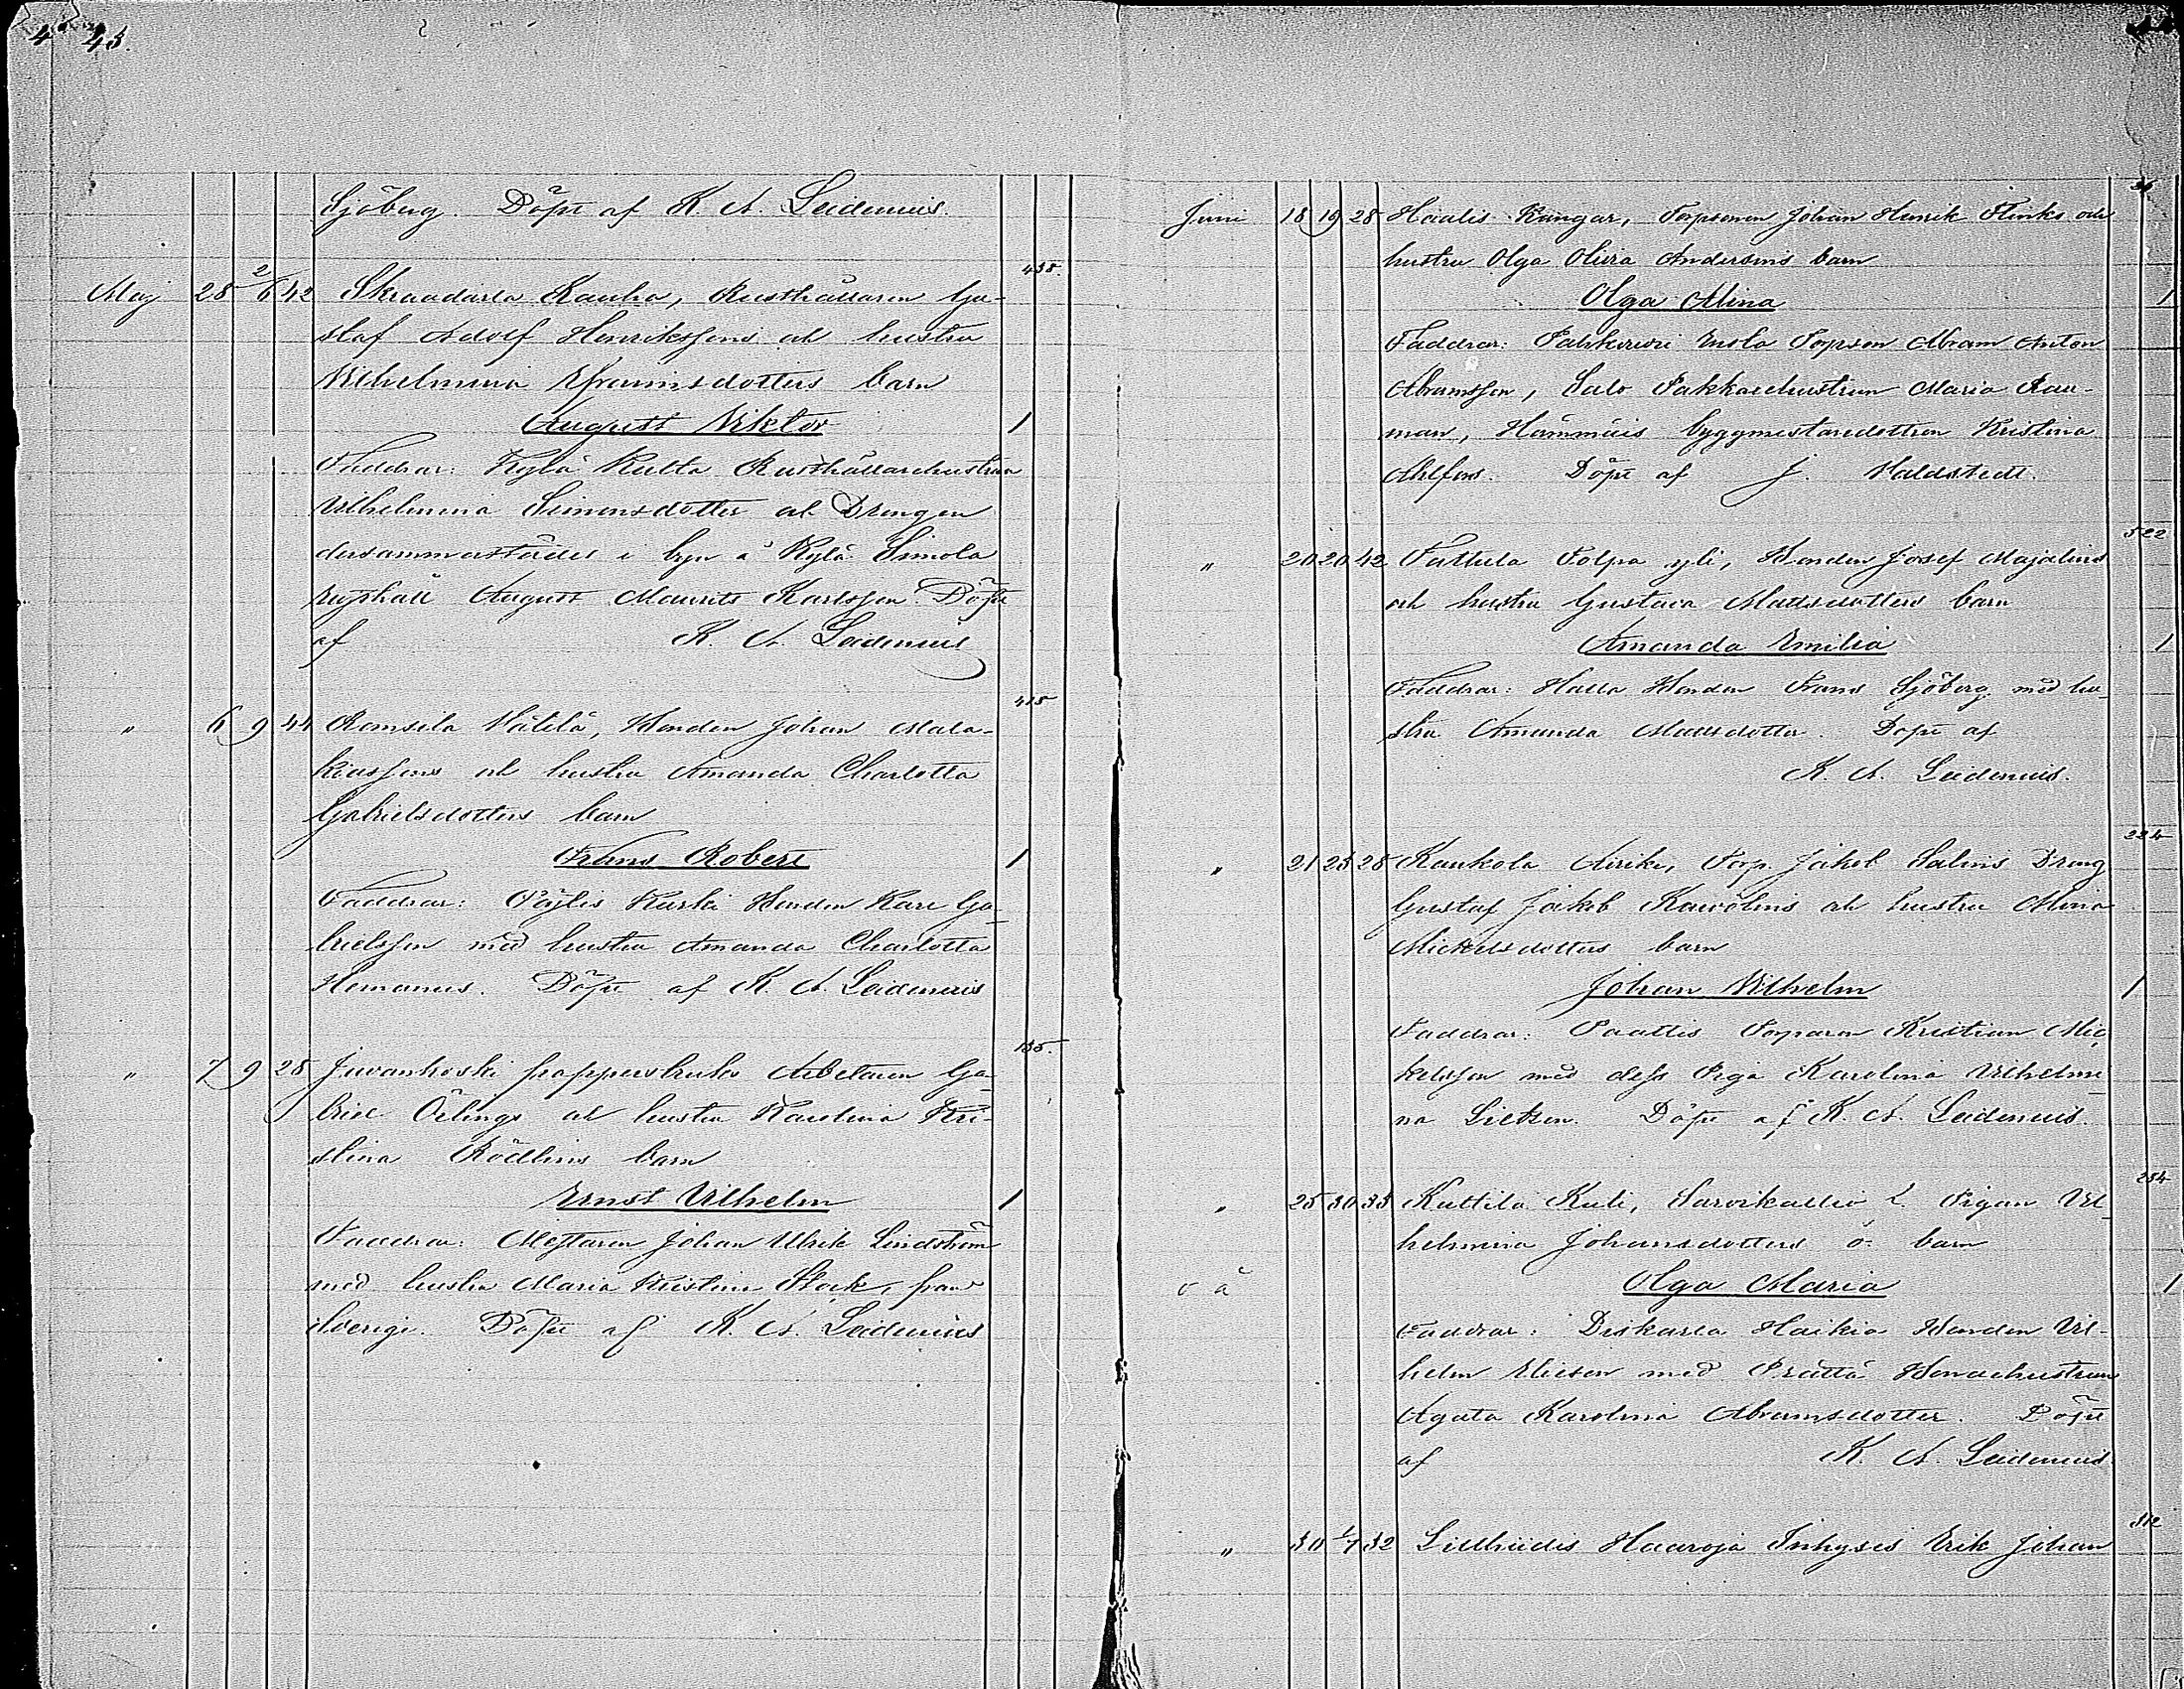 43.
Sjöberg. Döpt af K. A. Leidenius.
438.
Maj 28 2/6 42 Skraadarla Kauha, Rusthållaren Gu-
staf Adolf Henrikssons och hustru
Wilhelmina Efraimsdotters barn
August Viktor 1
Faddrar: Kylä Kulta Rusthållarehustrun
Vilhelmina Simonsdotter och Drengen
dersammastädes i byn å Kylä Simola
rusthåll August Maurits Karlsson. Döpt
af K. A. Leidenius
415
" 6 9 44 Ramsila Wätilä, Bonden Johan Mala-
kiassons och hustru Amanda Charlotta
Gabrielsdotters barn
Frans Robert 1
Faddrar: Päylis Kurki Bonden Karl Ga-
brielsson med hustru Amanda Charlotta
Hemanus. Döpt af K. A. Leidenius
155.
" 7 9 28 Juvankoski pappersbruks Arbetaren Ga-
briel Örlings och hustru Karolina Kri-
stina Rödlins barn
Ernst Vilhelm 1
Faddrar: Mästaren Johan Ulrik Lindström
med hustru Maria Kristina Stock, från
Sverige. Döpt af K. A. Leidenius
Juni 18 19 28 Haalis Kangar, Torparen Johan Henrik Flinks och
hustru Olga Olivia Andersins barn
Olga Alina 1
Faddrar: Torpson Abram Anton
Abramsson, Salo Maria Rau-
man, byggmästaredottren Kristina
Ahlfors. Döpt af J. Haldstedt.
522
" 20 20 42 Tattula Tolpa yli, Bonden Josef Majalins
och hustru Gustava Mattsdotters barn
Amanda Emilia 1
Faddrar: Halla Bonden Frans Sjöberg med hu-
stru Amanda Mattsdotter. Döpt af
K. A. Leidenius.
224
" 21 23 28 Kaukola Torp. Jakob Salmis Dreng
Gustaf Jakob och hustru Mina
Mickelsdotters barn
Johan Vilhelm 1
Faddrar: Paattis Torparen Kristian Mic-
kelsson med dess Piga Karolina Vilhelmi-
na Lietzen. Döpt af K. A. Leidenius.
254
" 25 30 33 Kuttila Kuli, Sarvikallio L. Pigan Vil-
helmina Johansdotters o. ä. barn
o ä Olga Maria 1
Faddrar: Diskarla Haikio Bonden Vil-
helm Elieson med Prättä Bondehustrun
Agata Karolina Abramsdotter. Döpt
af K. A. Leidenius
312
" 30 1/7 32 Haaroja Inhyses Erik Johan